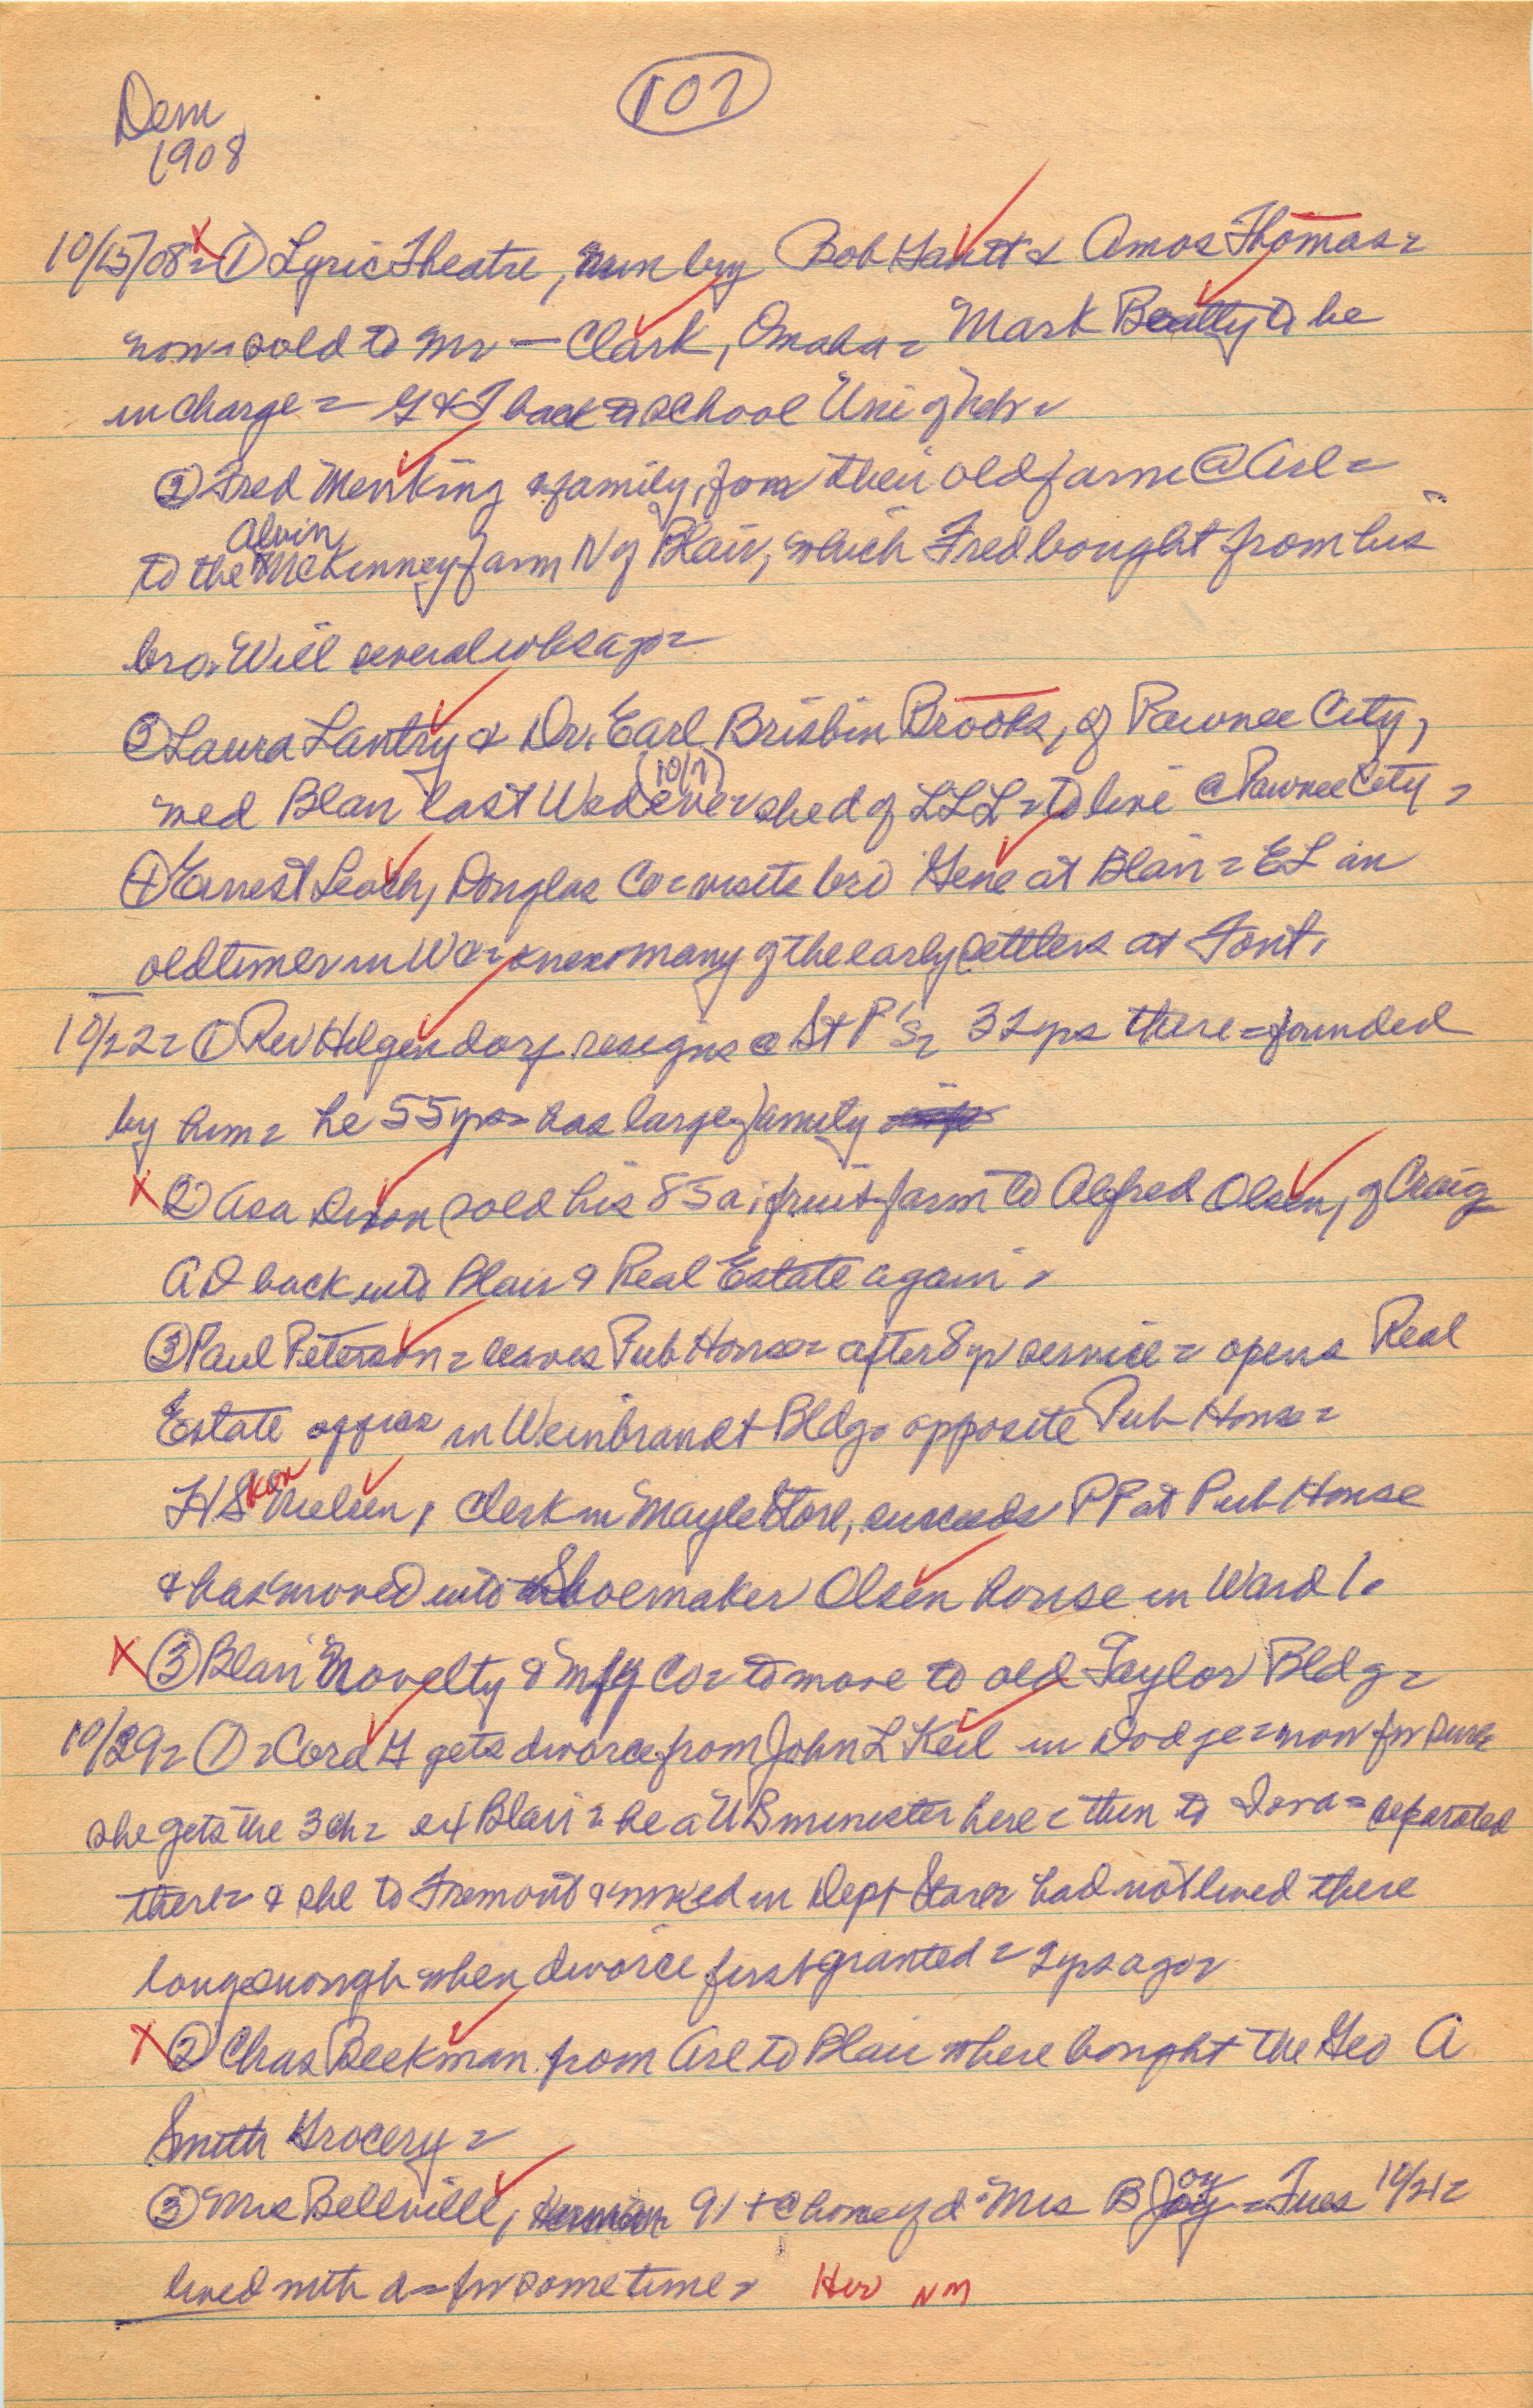 107
Dem
1908
10/15/08 = X ① Lyric Theatre, run by Bob Gantt & Amos Thomas =
now sold to Mr — Clark, Omaha = Mark Beatty to be
in charge = G & T back to school Uni of Nebr =
② Fred Menking & family, from their old farm @ Arl =
Alvin
to the McKinney farm N of Blair, which Fred bought from his
bro. Will several wks ago =
③ Laura Lantry & Dr. Earl Brisbin Brooks, of Pawnee City,
(10/7)
med Blair last Wed eve = she d of LLL = to live @ Pawnee City =
④ Ernest Leach, Douglas Co = visits bro Gene at Blair = EL an
oldtimer in WC = knew many of the early settlers at Font.
10/22 = ① Rev Hilgendorf resigns @ St P's = 32 yrs there = founded
by him = he 55 yrs = has large family
X ② Asa Dixon sold his 85 a. fruit farm to Alfred Olsen, of Craig
AD back into Blair & Real Estate again =
③ Paul Peterson = leaves Pub House = after 8 yr service = opens Real
Estate office in Weinbrandt Bldg = opposite Pub House =
kov
HS Nielsen, clerk in Mayle Store, succeeds PP at Pub House
& has moved into Shoemaker Olsen house in Ward 1.
X ③ Blair Novelty & Mfg Co = to move to old Taylor Bldg =
10/29 = ① = Cora H gets divorce from John L Keil in Dodge =
she gets the 3 ch = ex Blair = he a UB minister here = then to Iowa = separated
there = & she to Fremont & worked in Dept Store = had not lived there
long enough when divorce first granted = 2 yrs ago =
X ② Chas Beekman from Arl to Blair where bought the Geo A
Smith Grocery =
③ Mrs Bellville, Herman 91 + @ home of d Mrs B Joy = Tues 10/21 =
oy
lived with d = for some time = Her NM